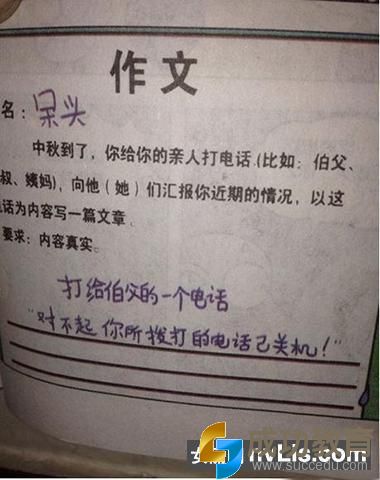 作文
名：呆头
中秋到了，你给你的亲人打电话(比如：伯父、
叔、姨妈)，向他（她）们汇报你近期的情况，以这
电话为内容写一篇文章。
要求：内容真实。
打给伯父的一个电话
"对不起 你所拨打的电话已关机！"
成功教育
www.succedu.com